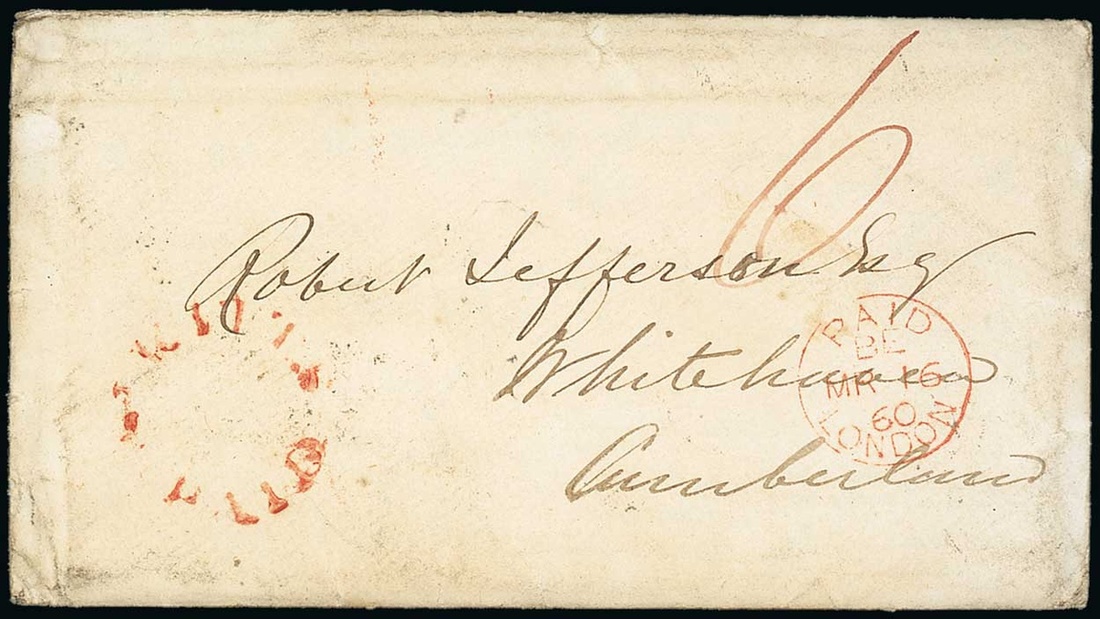 6
Robert Jefferson Esq
Whitehaven
Cumberland
PAID
BE
MR 16
60
LONDON